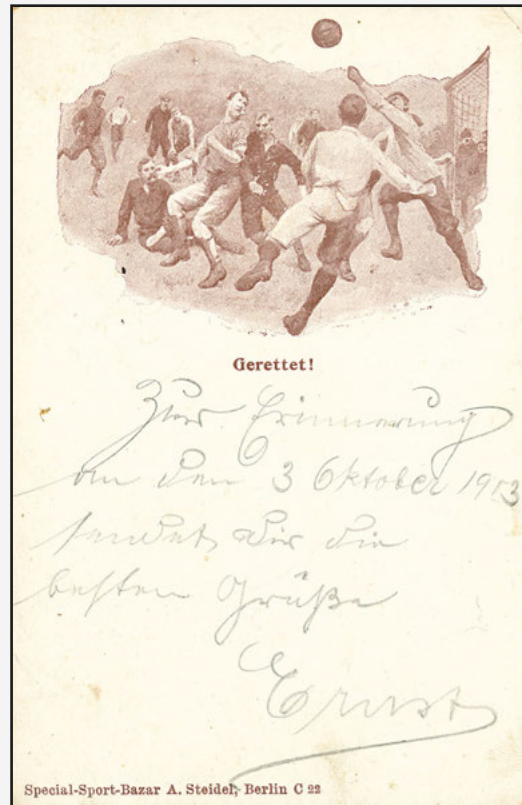 Gerettet!
Zur Erinnerung
an den 3 Oktober 1913
sendet Dir die
besten Grüße
Ernst
Special-Sport-Bazar A. Steidel, Berlin C 22